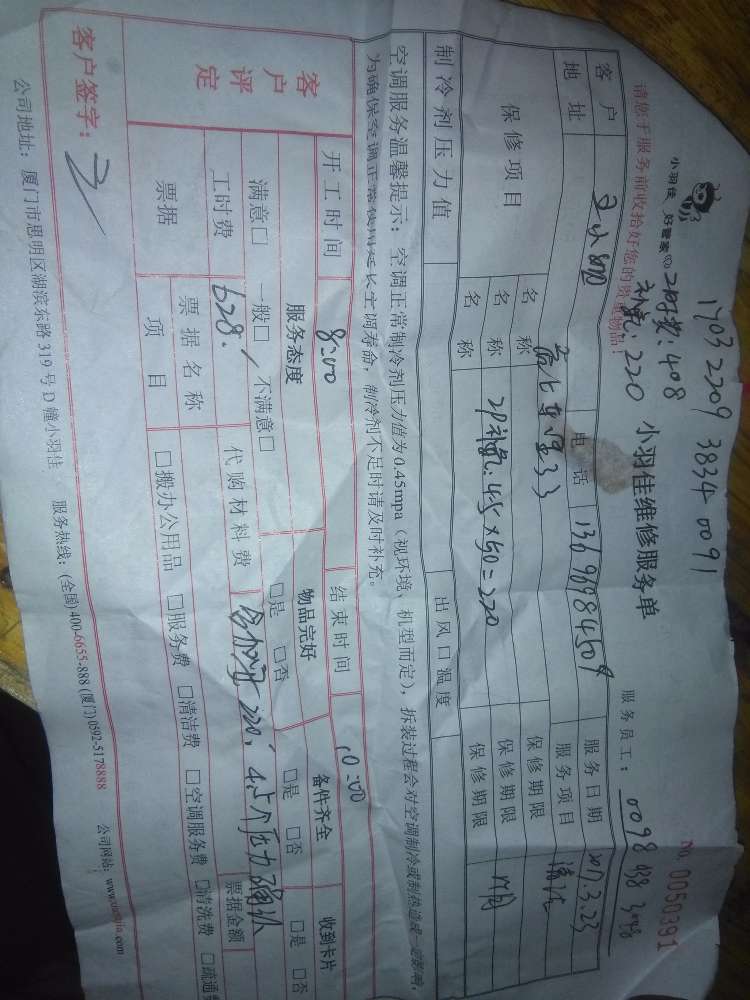 1703 2209 3834 0091
小羽佳 好管家
工时费：408
补氟：220
小羽佳维修服务单
No. 0050391
请您于服务前收拾好您的贵重物品！
服务员工：
客户
电话
服务日期 2017.3.23
地址
服务项目 清洗
保修项目
名称
保修期限
名称 2P补氟：45×50=220
保修期限
名称
保修期限
制冷剂压力值
出风口温度
空调服务温馨提示：空调正常制冷剂压力值为0.45mpa（视环境、机型而定），拆装过程会对空调制冷或制热造成一定影响，
为确保空调正常使用延长空调寿命，制冷剂不足时请及时补充。
客户评定
开工时间 8:00
结束时间 10:00
服务态度
物品完好
备件齐全
收到卡片
满意□ 一般□ 不满意□
□是 □否
□是 □否
□是 □否
工时费 628.
代购材料费
票据
票据名称
票据金额
项目
□搬办公用品 □服务费 □清洁费 □空调服务费 □清洗费 □疏通费
客户签字：
公司地址：厦门市思明区湖滨东路319号D幢小羽佳
服务热线：(全国)400-6655-888 (厦门)0592-5178888
公司网站：